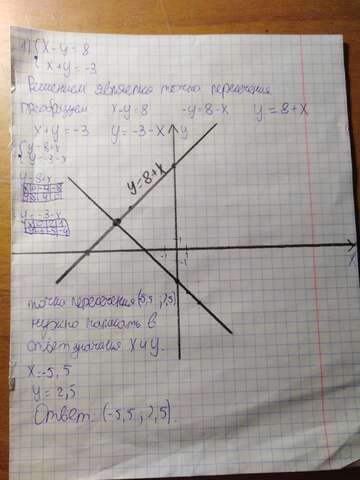 1) { x-y=8
x+y=-3
Решением является точка пересечения
x-y=8 -y=8-x y=8+x
x+y=-3 y=-3-x
y
{ y=8+x
y=-3-x
y=8+x
y=-3-x
y=8+x
точка пересечения (-5,5 ; 2,5)
нужно написать в
ответ значения x и y.
x=-5,5
y=2,5
Ответ: (-5,5 ; 2,5).